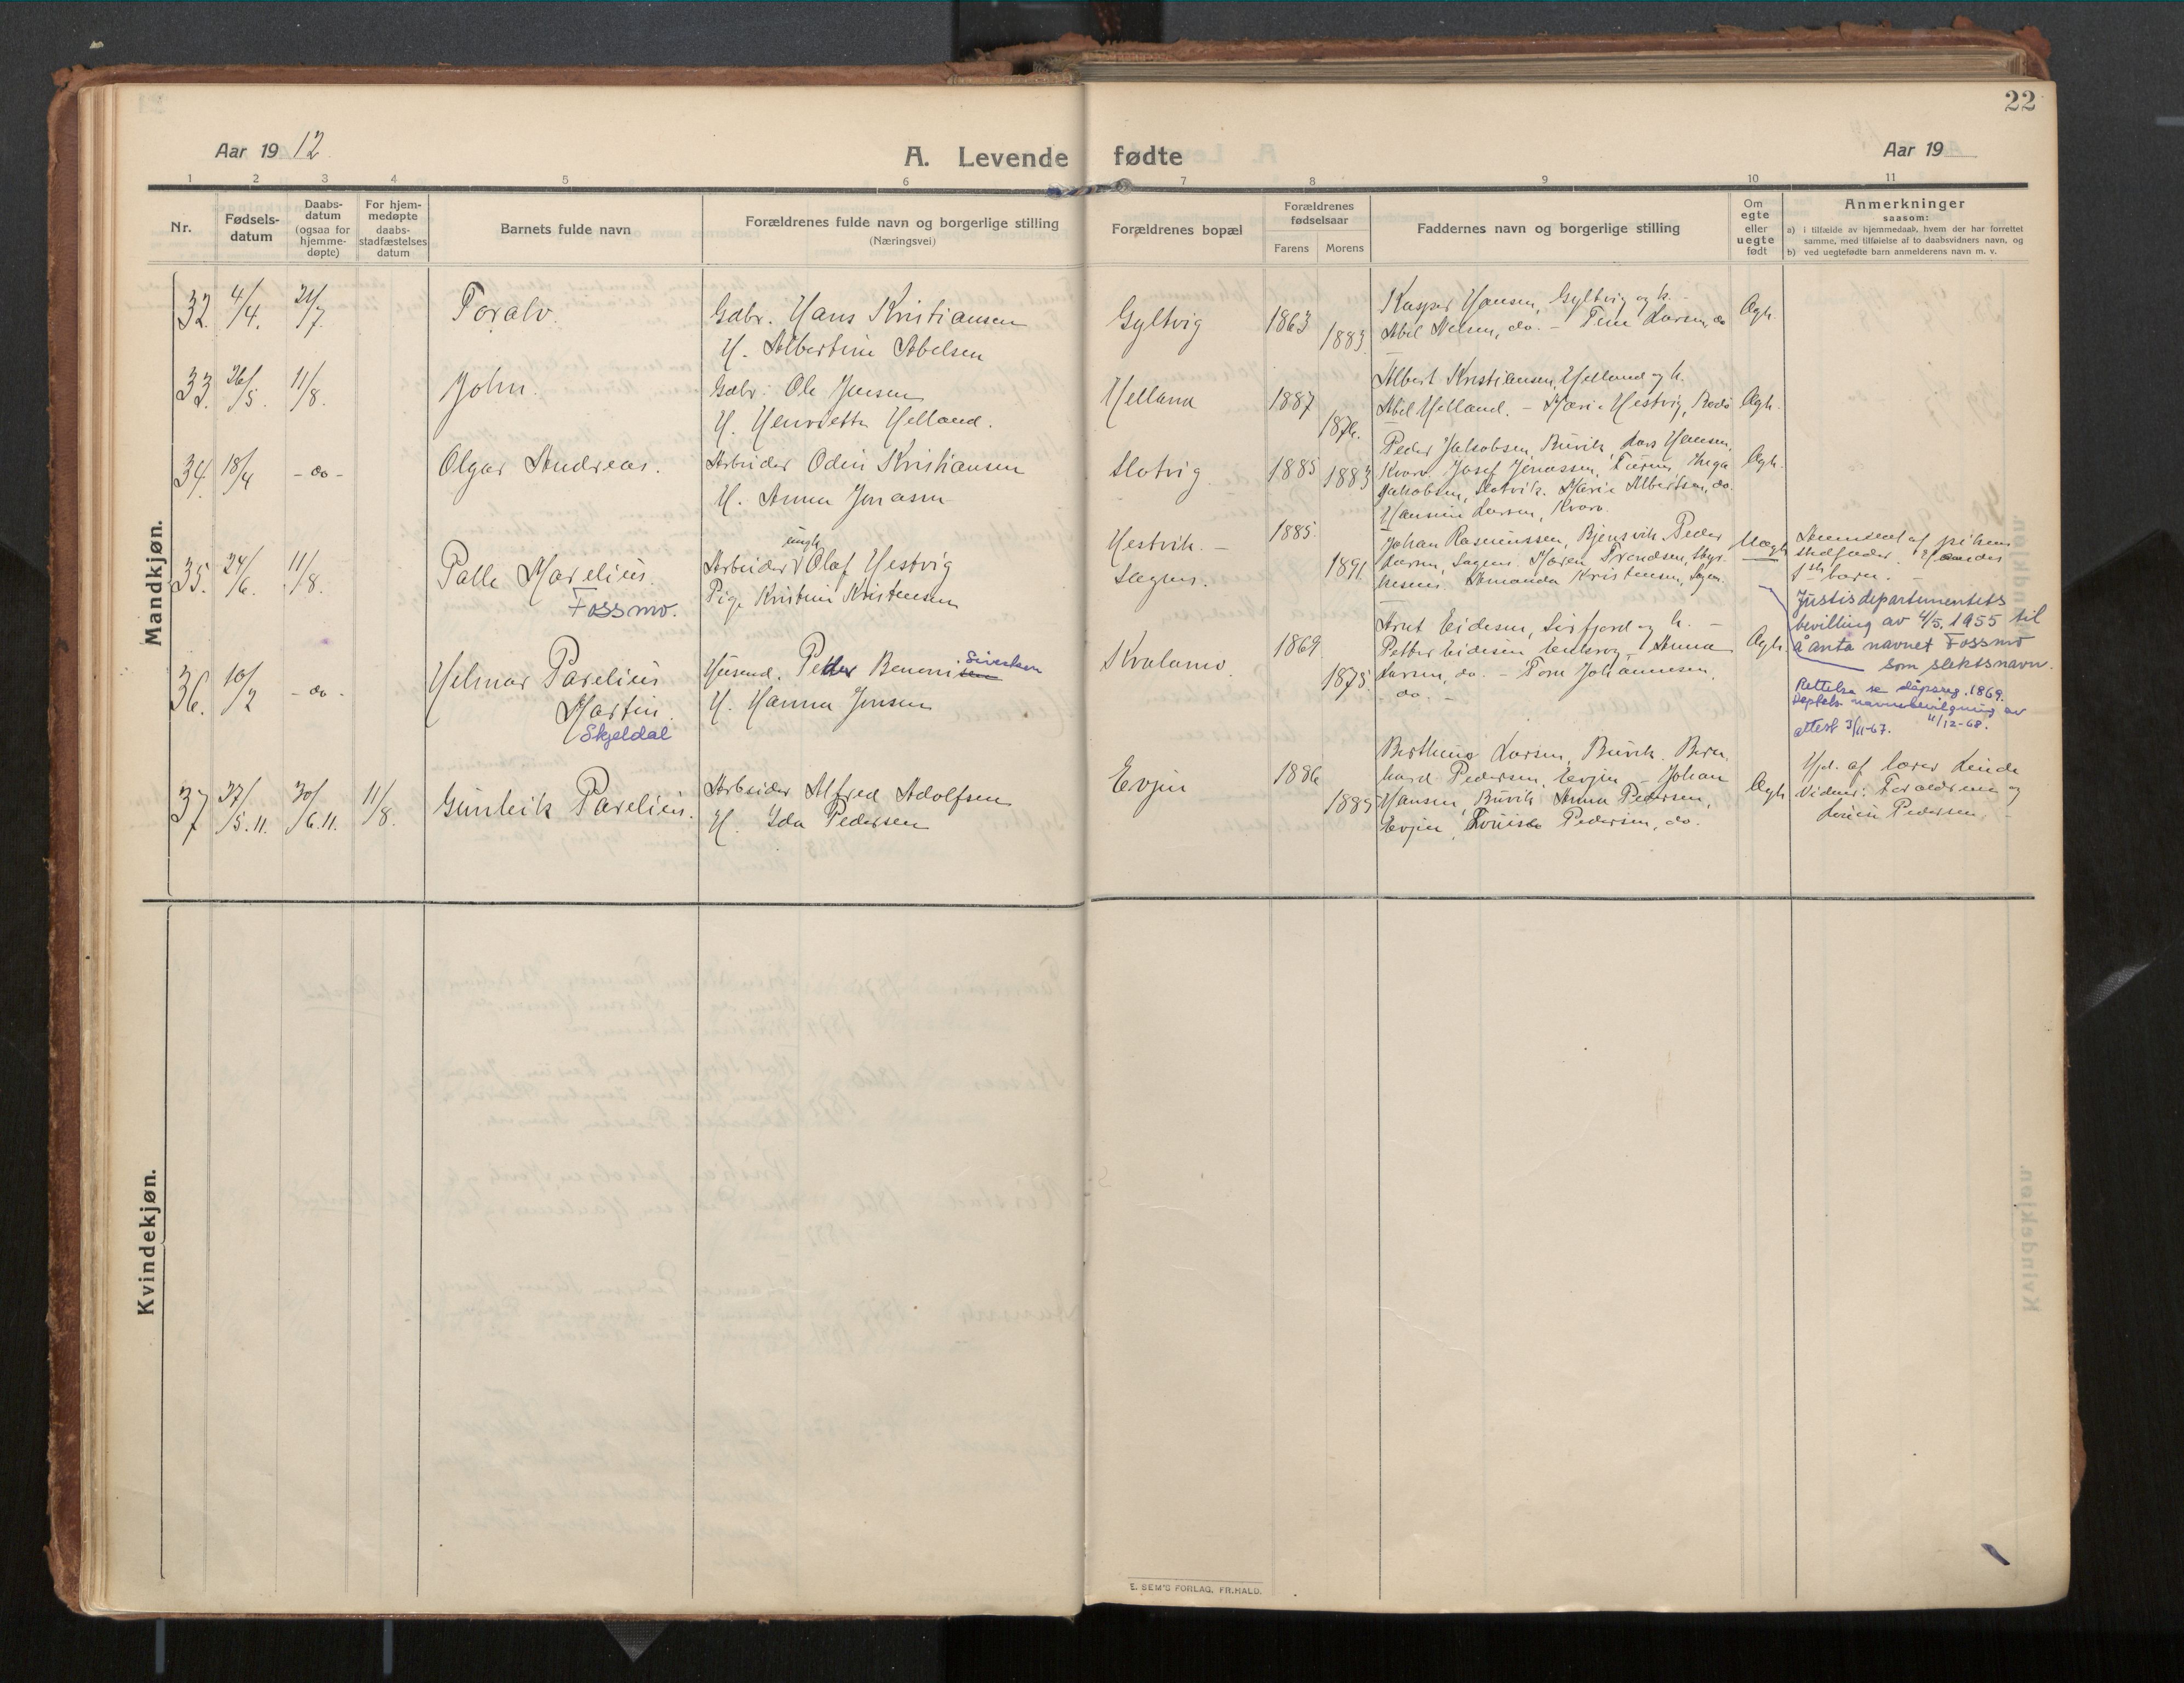 22
Aar 19 12.
A. Levende fødte
Aar 19
1 2 3 4 5 6 7 8 9 10 11
Nr.
Fødsels-
datum
Daabs-
datum
(ogsaa for
hjemme-
døpte)
For hjem-
medøpte
daabs-
stadfæstelses
datum
Barnets fulde navn
Forældrenes fulde navn og borgerlige stilling
(Næringsvei)
Forældrenes bopæl
Forældrenes
fødselsaar
Farens Morens
Faddernes navn og borgerlige stilling
Om
egte
eller
uegte
født
Anmerkninger
saasom:
a) i tilfælde av hjemmedaab, hvem der har forrettet
samme, med tilføielse af to daabsvidners navn, og
b) ved uegtefødte barn anmelderens navn m. v.
Mandkjøn.
32. 4/4. 21/7. Toralv.
Gdbr. Hans Kristiansen
H. Albertine Abelsen
Gyltvig 1863 1883.
Kasper Hansen, Gyltvig og h. -
Abel Nelsen, do. - Tine Larsen, do
Ægh.
33. 26/5. 11/8. John.
Gdbr. Ole Jensen
H. Henriette Helland.
Helland 1887 1876.
Albert Kristiansen, Helland og h.
Abel Helland. - Marie Hestvig, Bodö
Ægh.
34. 18/4 - do - Olgar Andreas.
Arbeider Odin Kristiansen
H. Anna Jonasen
Slotvig. 1885 1883
Peder Jakobsen, Buvik, Lars Hansen,
Kvarv. Josef Jonassen, Inga
Jakobsen, Slotvik. Marie Albertsen, do.
Hansine Larsen, Kvarv.
Ægh.
35. 24/6. 11/8. Palle Marelius.
Fossmo.
ungk.
Arbeider Olaf Hestvig
Pige Kristine Kristensen
Hestvik. -
Sagnes.
1885. 1891.
Johan Rasmussen, Bjensvik. Peder
Larsen, Sagnes. Maren Trondsen, Styr-
Amanda Kristensen, Sagn.
Uægh
Anmeldt af pikens
stedfader. Hendes
1ste barn. -
Justisdepartementets
bevilling av 4/5. 1955 til
å anta navnet Fossmo
som slektsnavn.
36. 10/2 - do - Helmar Parelius
Martin.
Skjeldal
Husmd. Peder Benoni Sivertsen
H. Hanna Jensen
Kvalamo. 1869. 1875.
Arnt Eidesen, Sirfjord og h. -
Petter Eidesen Anna
Larsen, do. - Tora Johannesen,
do. -
Ægh
Rettelse se dåpsreg. 1869.
Deptets navnebevilgning av
attest 3/11-67. 11/12-68.
37 27/5.11. 30/6.11. 11/8. Gunleik Parelius.
Arbeider Alfred Adolfsen
H. Ida Pedersen
Evjen 1886 1885
Berthinus Larsen, Buvik. Bern-
hard Pedersen, Evjen - Johan
Hansen, Buvik Anna Pedersen,
Evjen, Lovise Pedersen, do.
Ægh
Hjd. af lærer Linde
Vidner: Forældrene og
Lovise Pedersen. -
Kvindekjøn.
E. SEM'S FORLAG, FR.HALD.